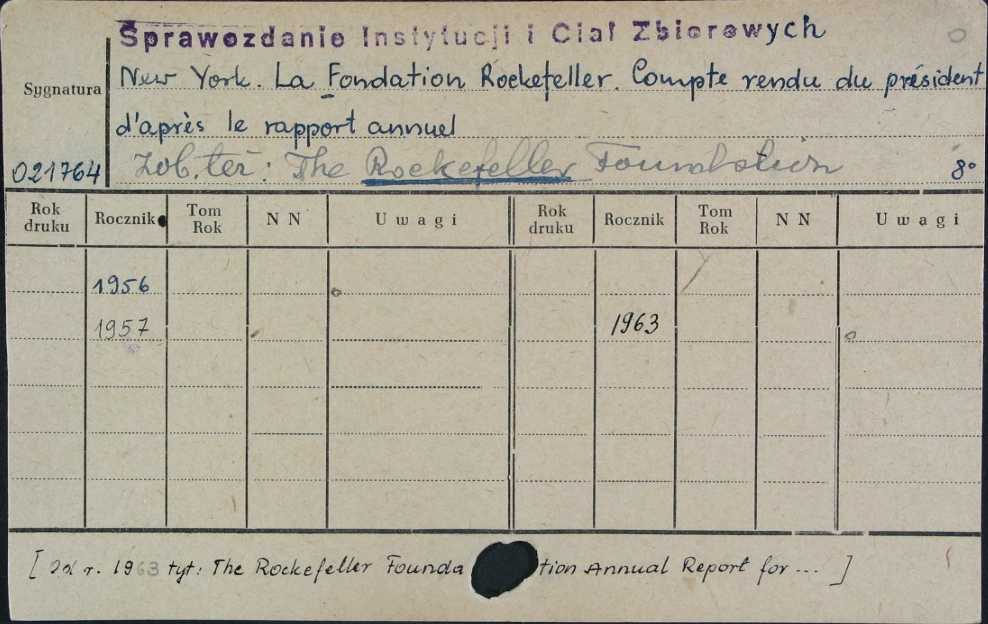 Sprawozdanie Instytucji i Ciał Zbiorowych
New York. La Fondation Rockefeller. Compte rendu du président
Sygnatura
d'après le rapport annuel
021764 Zob. też: The Rockefeller Foundation 8°
Rok druku Rocznik Tom Rok NN Uwagi Rok druku Rocznik Tom Rok NN Uwagi
1956
1957 1963
[Od r. 1963 tyt: The Rockefeller Foundation Annual Report for ... ]